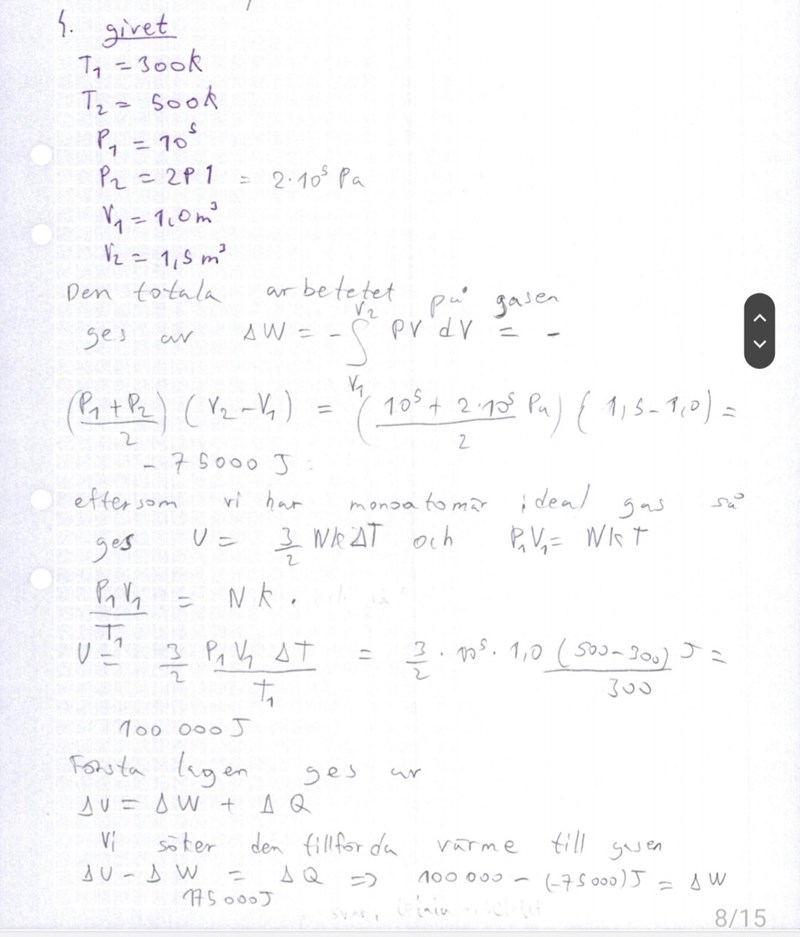 4. givet
T₁ = 300k
T₂ = 500k
P₁ = 10⁵
P₂ = 2P1 = 2·10⁵ Pa
V₁ = 1,0m³
V₂ = 1,5m³
Den totala arbetetet på gasen
ges av ΔW = - ∫_{V₁}^{V₂} PV dV = -
(P₁+P₂)/2 (V₂-V₁) = (10⁵ + 2·10⁵ Pa)/2 (1,5-1,0) =
-75000 J
eftersom vi har monoatomär ideal gas så
ges U = 3/2 NkΔT och P₁V₁= NkT
P₁V₁/T₁ = Nk.
U = 3/2 P₁V₁ΔT/T₁ = 3/2 · 10⁵ · 1,0 (500-300)/300 J =
100 000 J
Första lagen ges av
ΔU = ΔW + ΔQ
Vi söker den tillförda värme till gasen
ΔU - ΔW = ΔQ => 100 000 - (-75000)J = ΔW
175000J
8/15